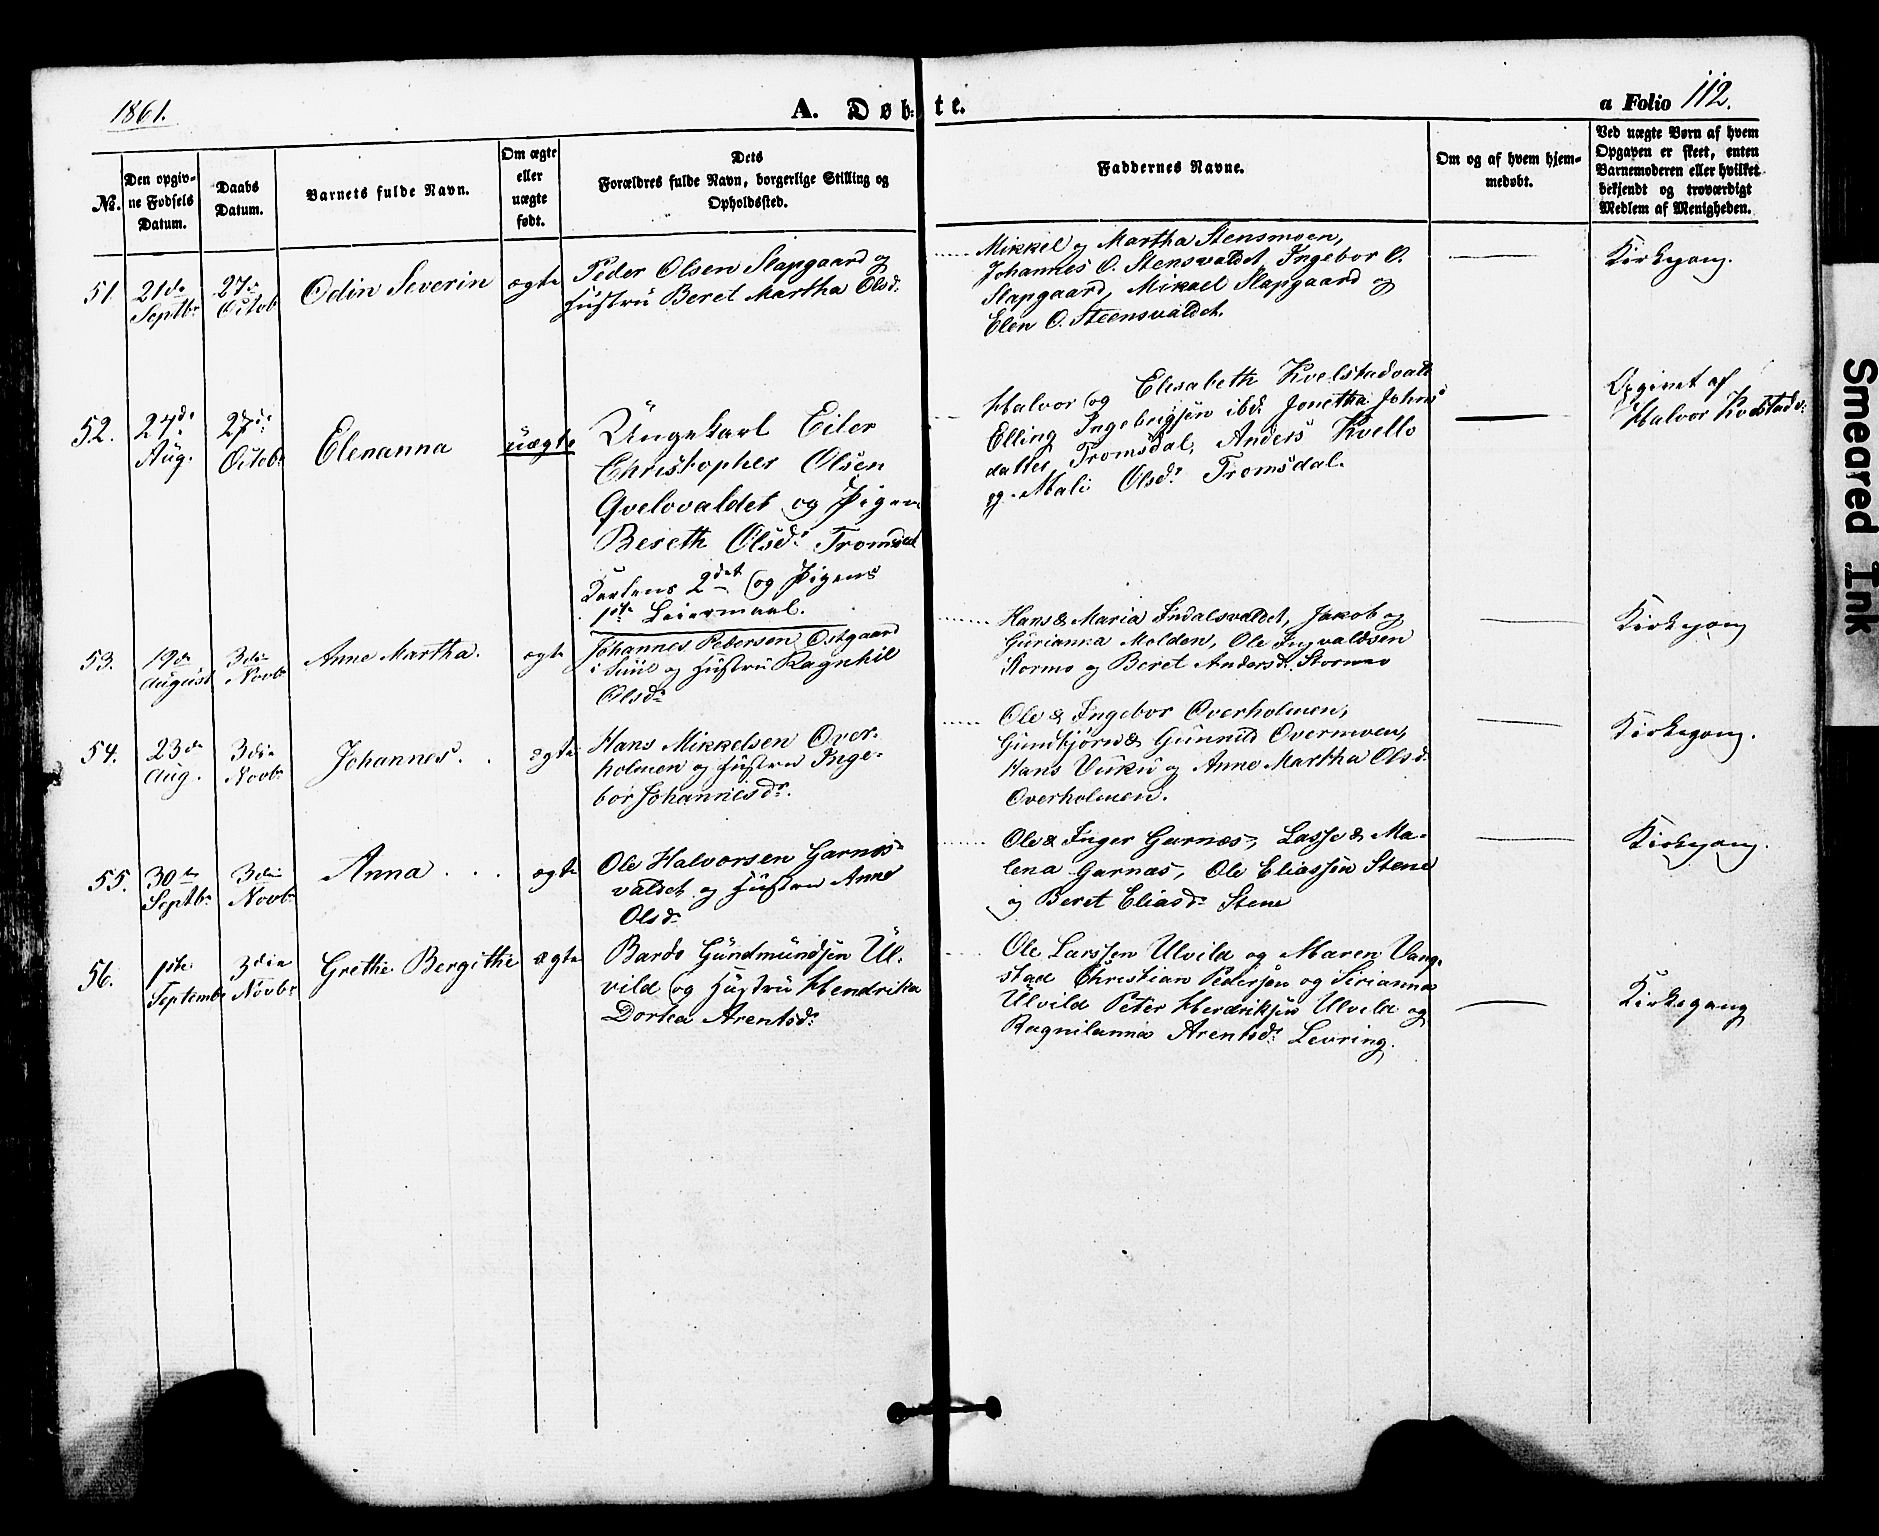 1861.
A. Døb-
te.
a Folio 112.
No.
Den opgiv-
ne Fødsels
Datum.
Daabs
Datum.
Barnets fulde Navn.
Om ægte
eller
uægte
født.
Dets
Forældres fulde Navn, borgerlige Stilling og
Opholdssted.
Faddernes Navne.
Om og af hvem hjem-
medøbt.
Ved uægte Børn af hvem
Opgaven er skeet, enten
Barnemoderen eller hvilket
bekjendt og troværdigt
Medlem af Menigheden.
51.
21de
Septbr
27de
Octob
Odin Severin
ægte
Peder Olsen Slapgaard og
Hustru Beret Martha Olsd.
Mikkel og Martha Stensmoen,
Johannes O. Stensvaldet, Ingebor O.
Slapgaard, Mikael Slapgaard og
Elen O. Steensvaldet.
Kirkegang.
52.
24de
Aug.
27de
Octobr
Elenanna
uægte
Ungekarl Eiler
Christopher Olsen
Qvelovaldet og Pigen
Bereth Olsdr Tromsdal
Karlens 2det og Pigens
1ste Leiermaal.
Halvor og Elisabeth Kvelstadvald
Elling Ingebrigtsen ibd. Jonetha Johns
datter Tromsdal, Anders Kvello
og Mali Olsdr Tromsdal.
Opgivet af
Halvor Kvelstadv.
53.
19de
August
3die
Novbr
Anne Martha.
ægte
Johannes Pedersen Østgaard
i Suul og Hustru Ragnhil
Olsdr
Hans & Maria Indalsvaldet, Jakob og
Gurianna Molden, Ole Ingvaldsen
Stormo og Beret Andersdr Stormo
Kirkegang
54.
23de
Aug.
3die
Novbr
Johannes.
ægte
Hans Mikkelsen Over-
holmen og Hustru Inge-
bor Johannesdr.
Ole & Ingebor Overholmen,
Gundbjørn & Gunnild Overmoen,
Hans Vuku og Anne Martha Olsd.
Overholmen.
Kirkegang.
55.
30te
Septbr
3die
Novbr
Anna
ægte
Ole Halvorsen Garnæs-
valdet og Hustru Anne
Olsdr
Ole & Inger Garnæs, Lasse & Ma-
lena Garnæs, Ole Eliassen Stene
og Beret Eliasdr Stene
Kirkegang.
56.
1ste
Septembr
3die
Novbr
Grethe Bergithe
ægte
Bardo Gundmundsen Ul-
vild og Hustru Hendrika
Dorka Arentsdr
Ole Larssen Ulvild og Maren Vang-
stad Christian Pedersen og Sirianna
Ulvild Peter Hendriksen Ulvild og
Ragnilanna Arentsdr Levring.
Kirkegang
Smeared Ink